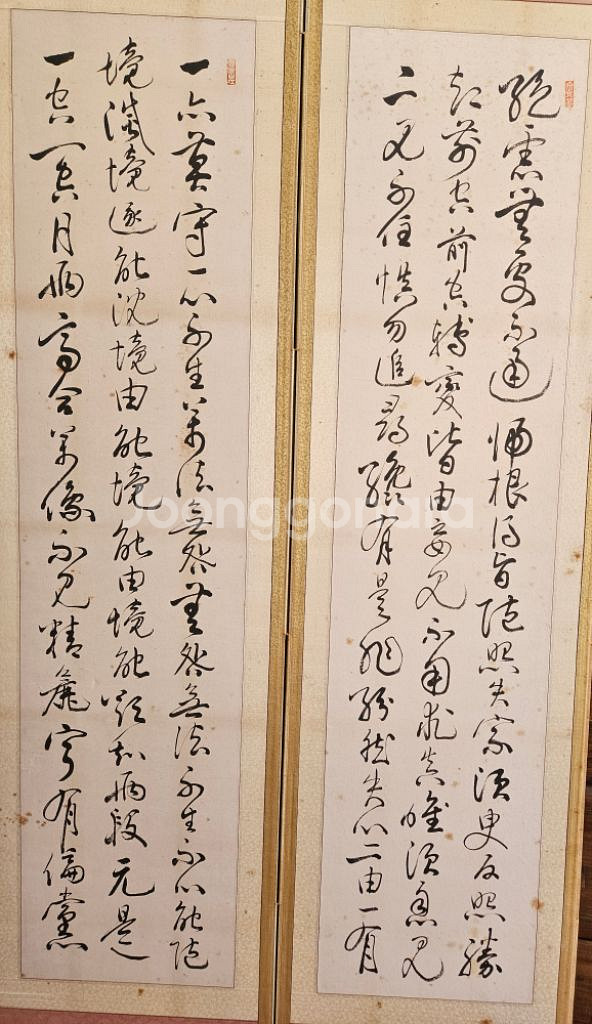 絶慮無處不通歸根得旨隨照失宗須臾反照勝
却前空前空轉變皆由妄見不用求真惟須息見
二見不住慎勿追尋纔有是非紛然失心二由一有
一亦莫守一心不生萬法無咎無咎無法不生不心能隨
境滅境逐能沈境由能境能由境能欲知兩段元是
一空一空同兩齊含萬像不見精麤寧有偏黨
Joonggonara